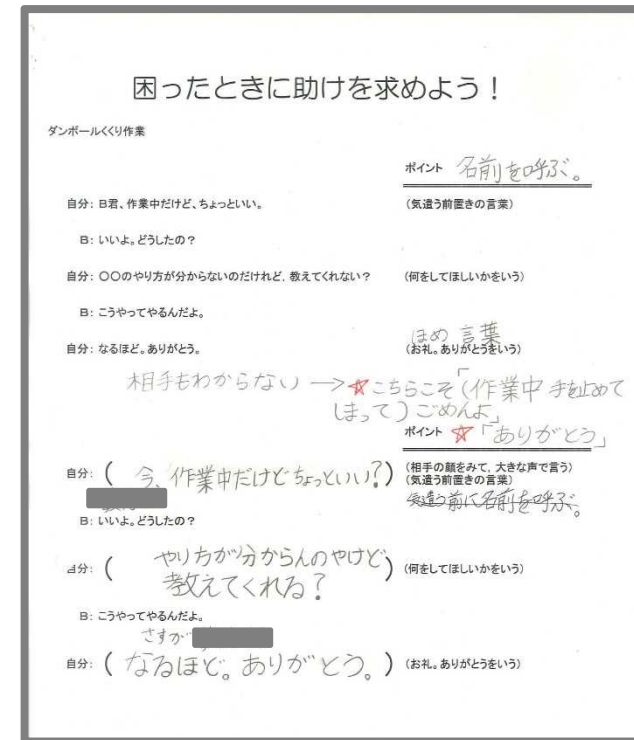 困ったときに助けを求めよう！
ダンボールくくり作業
ポイント 名前を呼ぶ。
自分：B君、作業中だけど、ちょっといい。 (気遣う前置きの言葉)
B：いいよ。どうしたの？
自分：〇〇のやり方が分からないのだけれど、教えてくれない？ (何をしてほしいかをいう)
B：こうやってやるんだよ。
ほめ 言葉
自分：なるほど。ありがとう。 (お礼。ありがとうをいう)
相手もわからない → ☆こちらこそ「(作業中 手を止めて
しまって) ごめんよ」
ポイント ☆「ありがとう」
自分：( 今、作業中だけどちょっといい？) (相手の顔をみて、大きな声で言う)
(気遣う前置きの言葉)
気遣う前に名前を呼ぶ。
B：いいよ。どうしたの？
自分：( やり方が分からんのやけど
教えてくれる？ ) (何をしてほしいかをいう)
B：こうやってやるんだよ。
さすが
自分：( なるほど。ありがとう。) (お礼。ありがとうをいう)